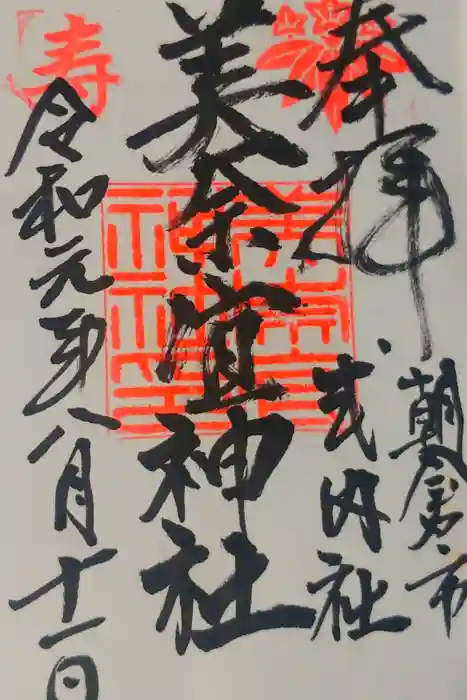 奉拝
朝倉市
式内社
美奈宜神社
令和元年八月十一日
寿